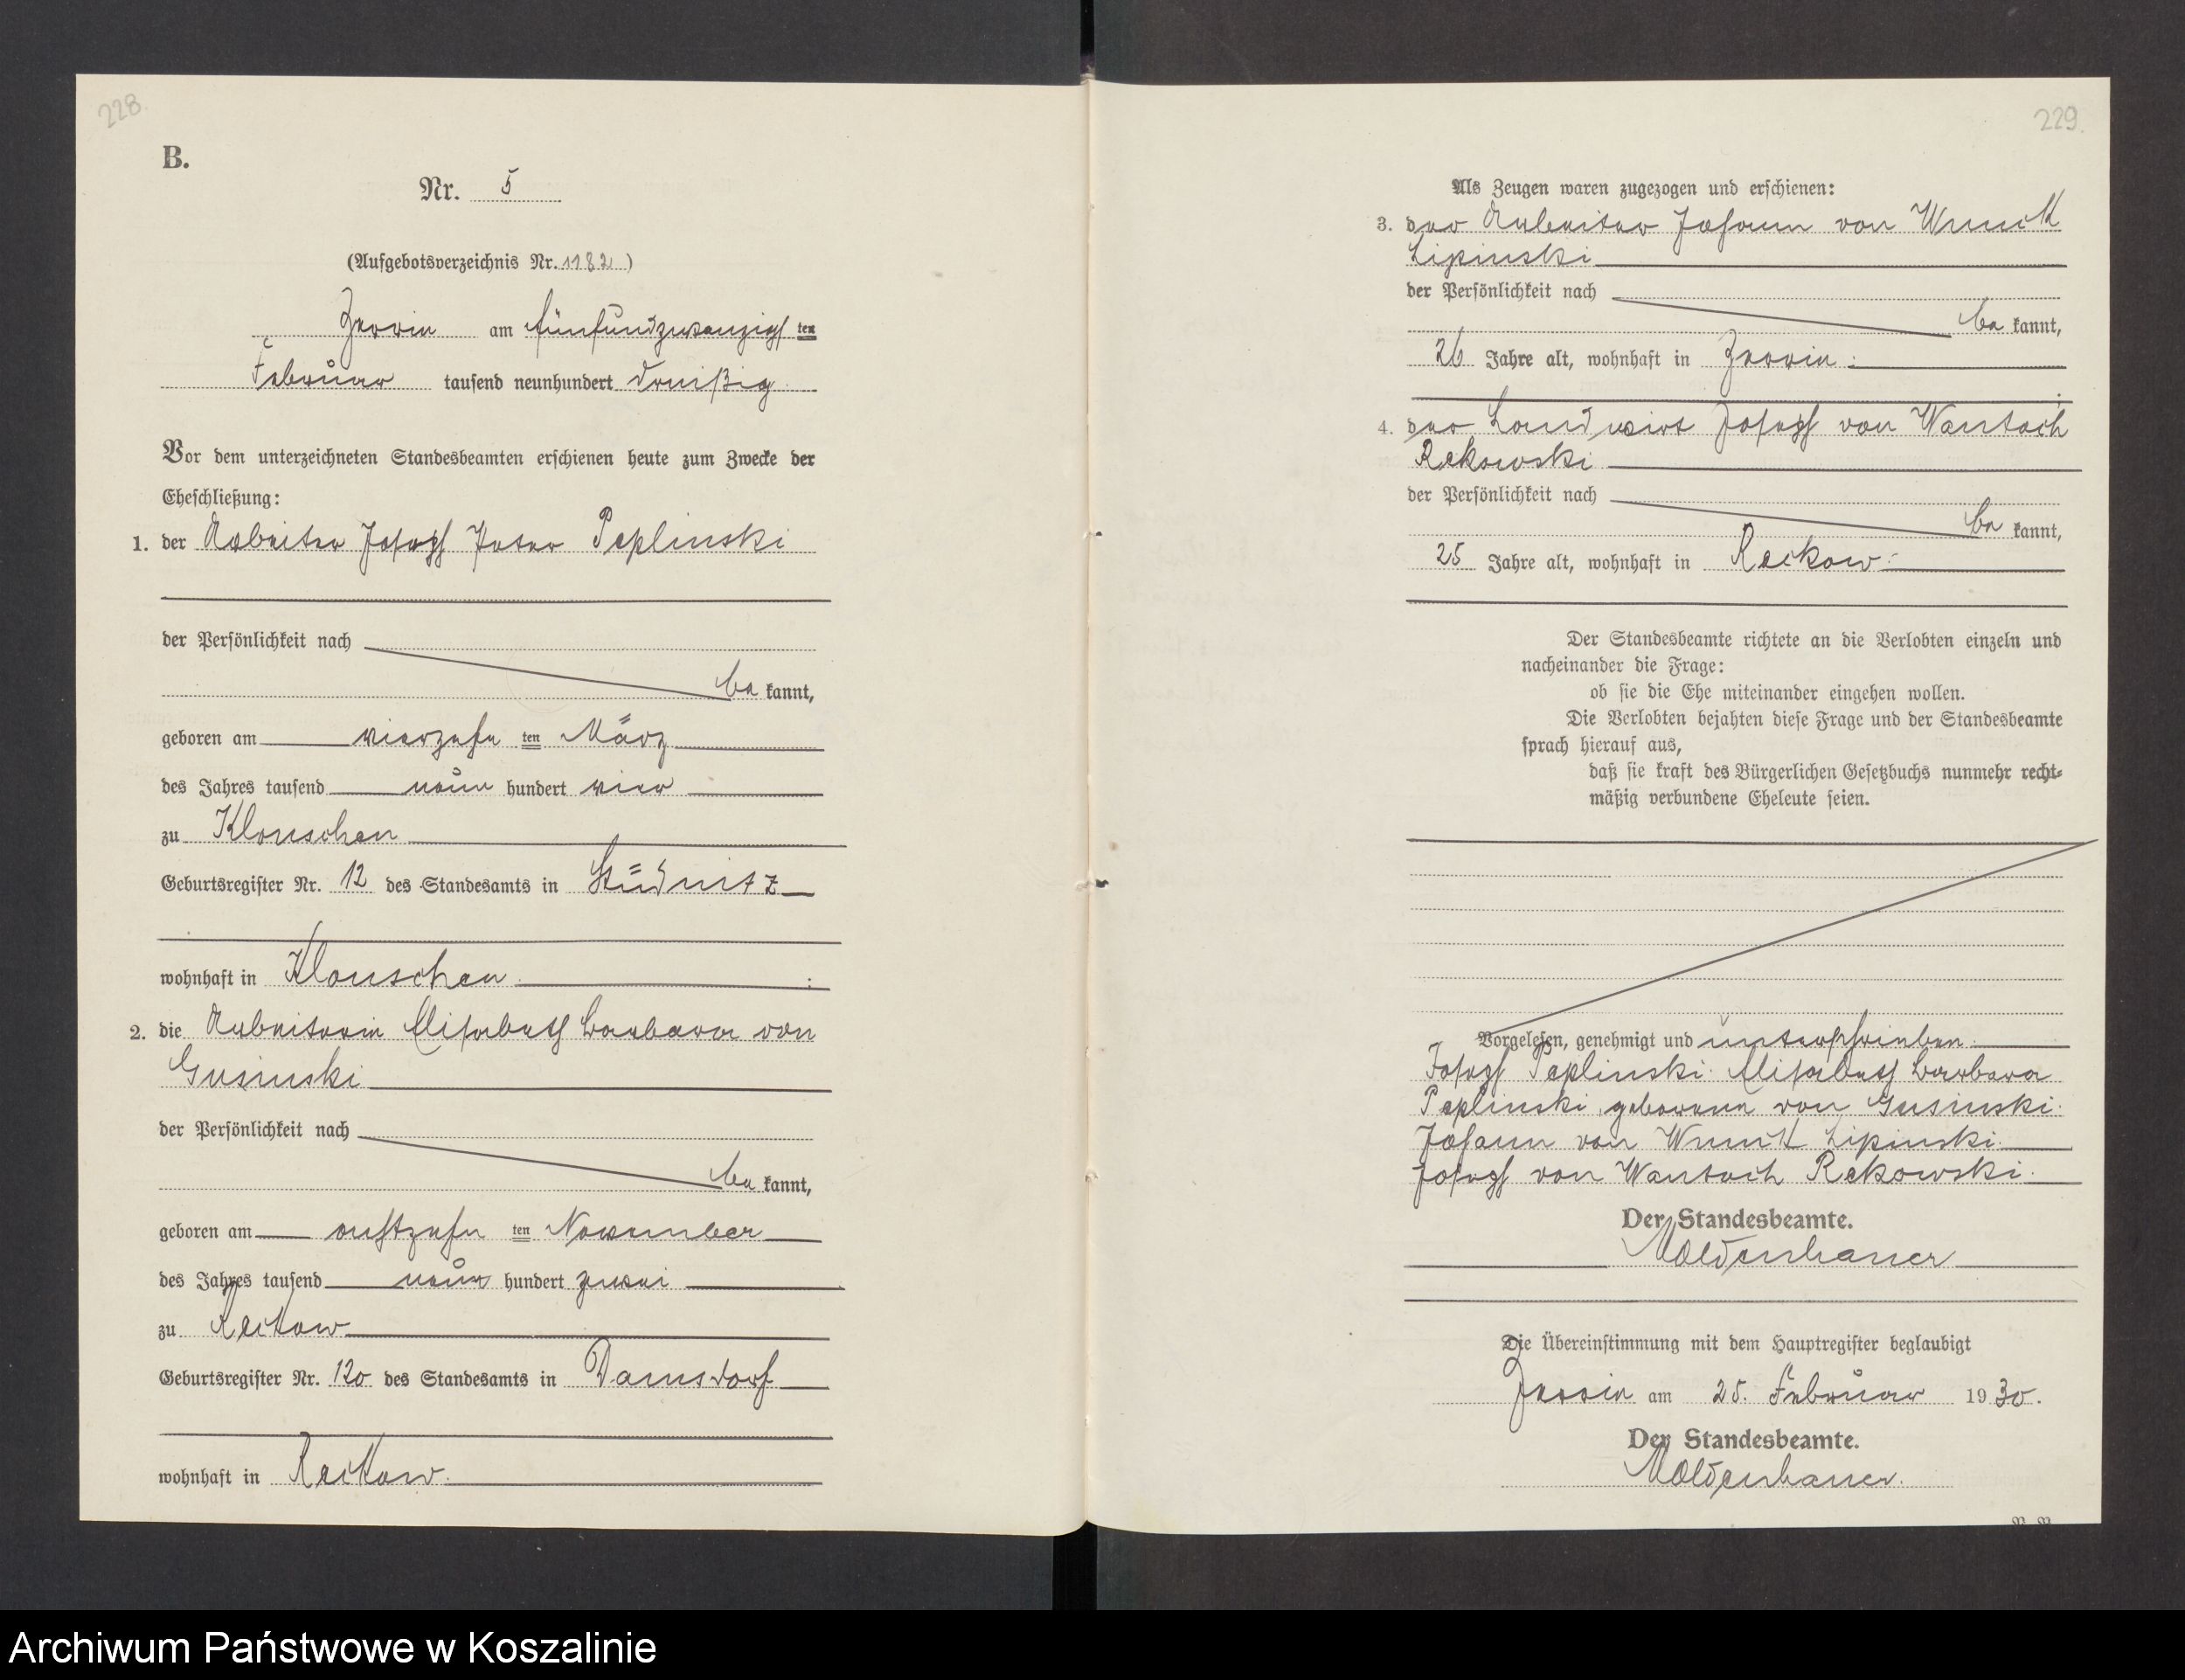 228.
B.
Nr. 5
(Aufgebotsverzeichnis Nr. 1182)
am fünfundzwanzigsten
Februar tausend neunhundert dreißig
Vor dem unterzeichneten Standesbeamten erschienen heute zum Zwecke der
Eheschließung:
1. der Arbeiter Josef Peter Peplinski
der Persönlichkeit nach
be kannt,
geboren am vierzehn ten März
des Jahres tausend neun hundert vier
zu Klonschen
Geburtsregister Nr. 12 des Standesamts in Stüdnitz
wohnhaft in Klonschen.
2. die Arbeiterin Elisabeth Barbara von
Gusinski
der Persönlichkeit nach
be kannt,
geboren am achtzehn ten November
des Jahres tausend neun hundert zwei
zu Reckow
Geburtsregister Nr. 120 des Standesamts in Damsdorf
wohnhaft in Reckow.
229.
Als Zeugen waren zugezogen und erschienen:
3. der Arbeiter Johann von Wnuck
Lipinski
der Persönlichkeit nach
be kannt,
26 Jahre alt, wohnhaft in
4. der Landwirt Josef von Wantoch
Rekowski
der Persönlichkeit nach
be kannt,
25 Jahre alt, wohnhaft in Reckow.
Der Standesbeamte richtete an die Verlobten einzeln und
nacheinander die Frage:
ob sie die Ehe miteinander eingehen wollen.
Die Verlobten bejahten diese Frage und der Standesbeamte
sprach hierauf aus,
daß sie kraft des Bürgerlichen Gesetzbuchs nunmehr recht-
mäßig verbundene Eheleute seien.
Vorgelesen, genehmigt und unterschrieben.
Josef Peplinski. Elisabeth Barbara
Peplinski geborene von Gusinski.
Johann von Wnuck Lipinski.
Josef von Wantoch Rekowski.
Der Standesbeamte.
Moldenhauer
Die Übereinstimmung mit dem Hauptregister beglaubigt
am 25. Februar 1930.
Der Standesbeamte.
Moldenhauer.
Archiwum Państwowe w Koszalinie